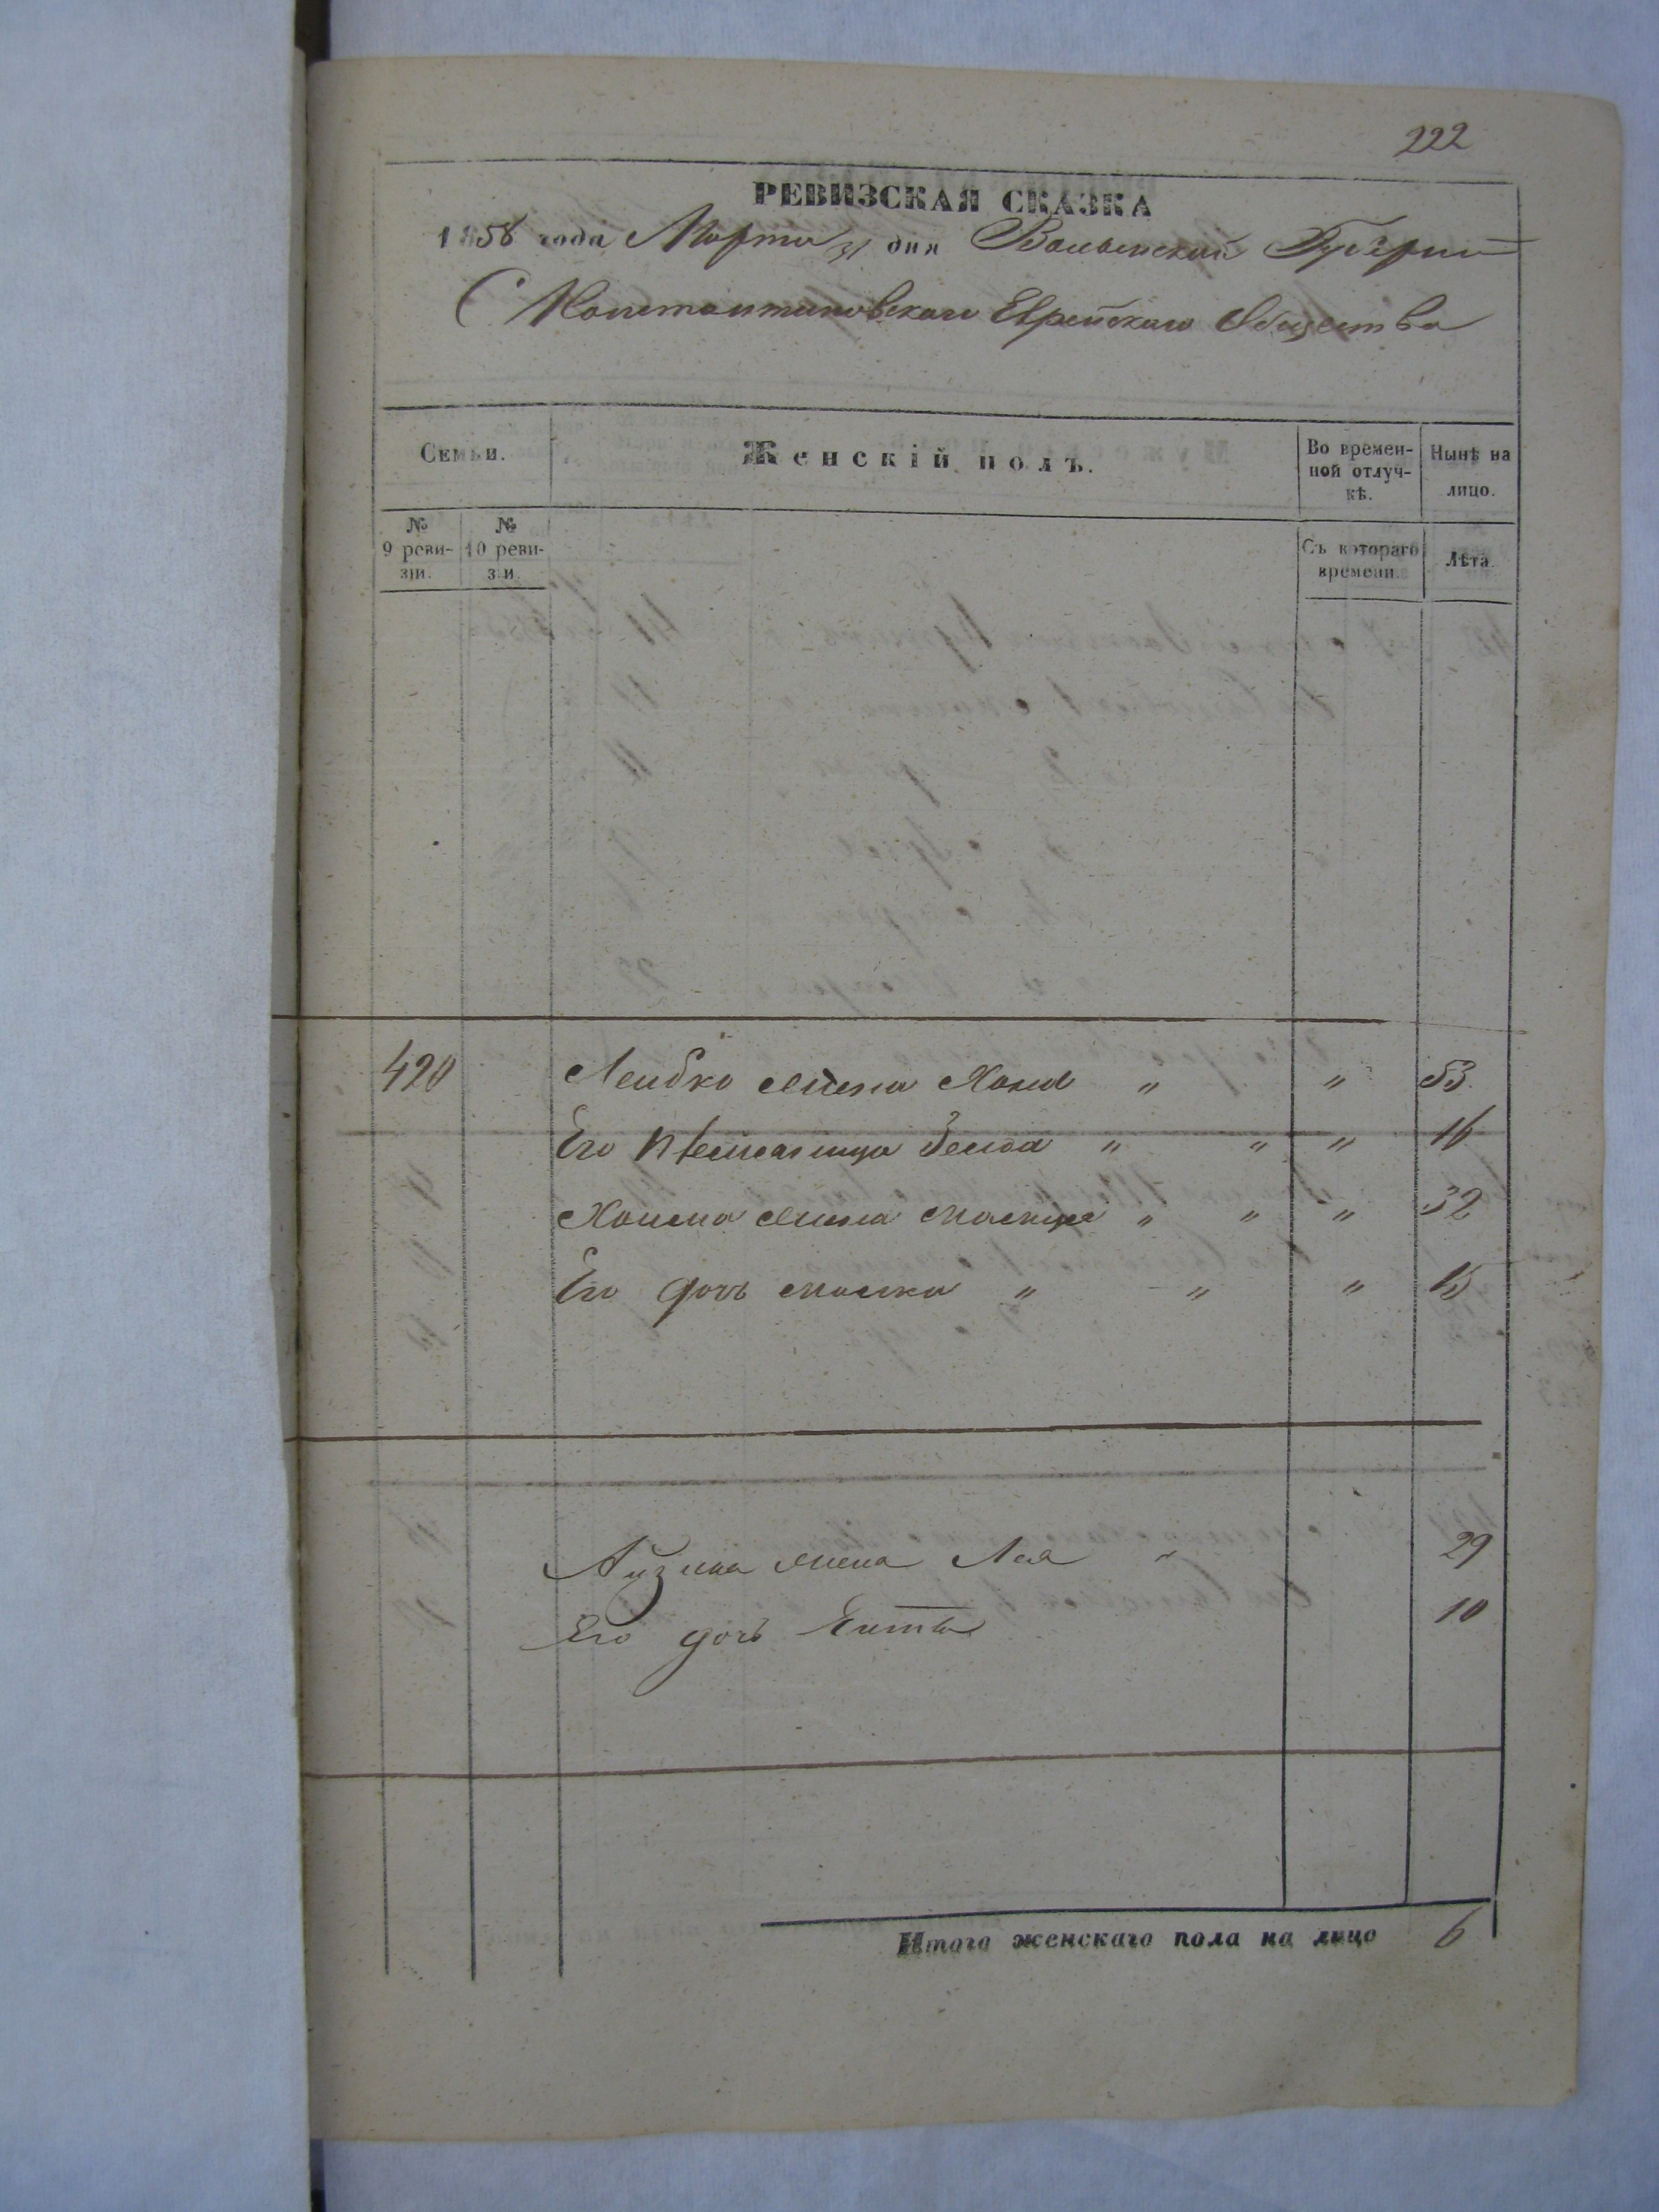 222
РЕВИЗСКАЯ СКАЗКА
1858 года Марта 31 дня Волынской Губернии
С Константиновскаго Еврейскаго Общества
Семьи.
Женскій полъ.
Во времен-
ной отлуч-
кѣ.
Нынѣ на
лицо.
№
9 реви-
зіи.
№
10 реви-
зіи.
Съ котораго
времени.
Лѣта.
420 Лейбко жена Хана " " 53
Его племянница Зелда " " " 16
жена " " " 32
Его дочь " " " 15
жена Лея " 29
Его дочь 10
Итого женскаго пола на лицо 6